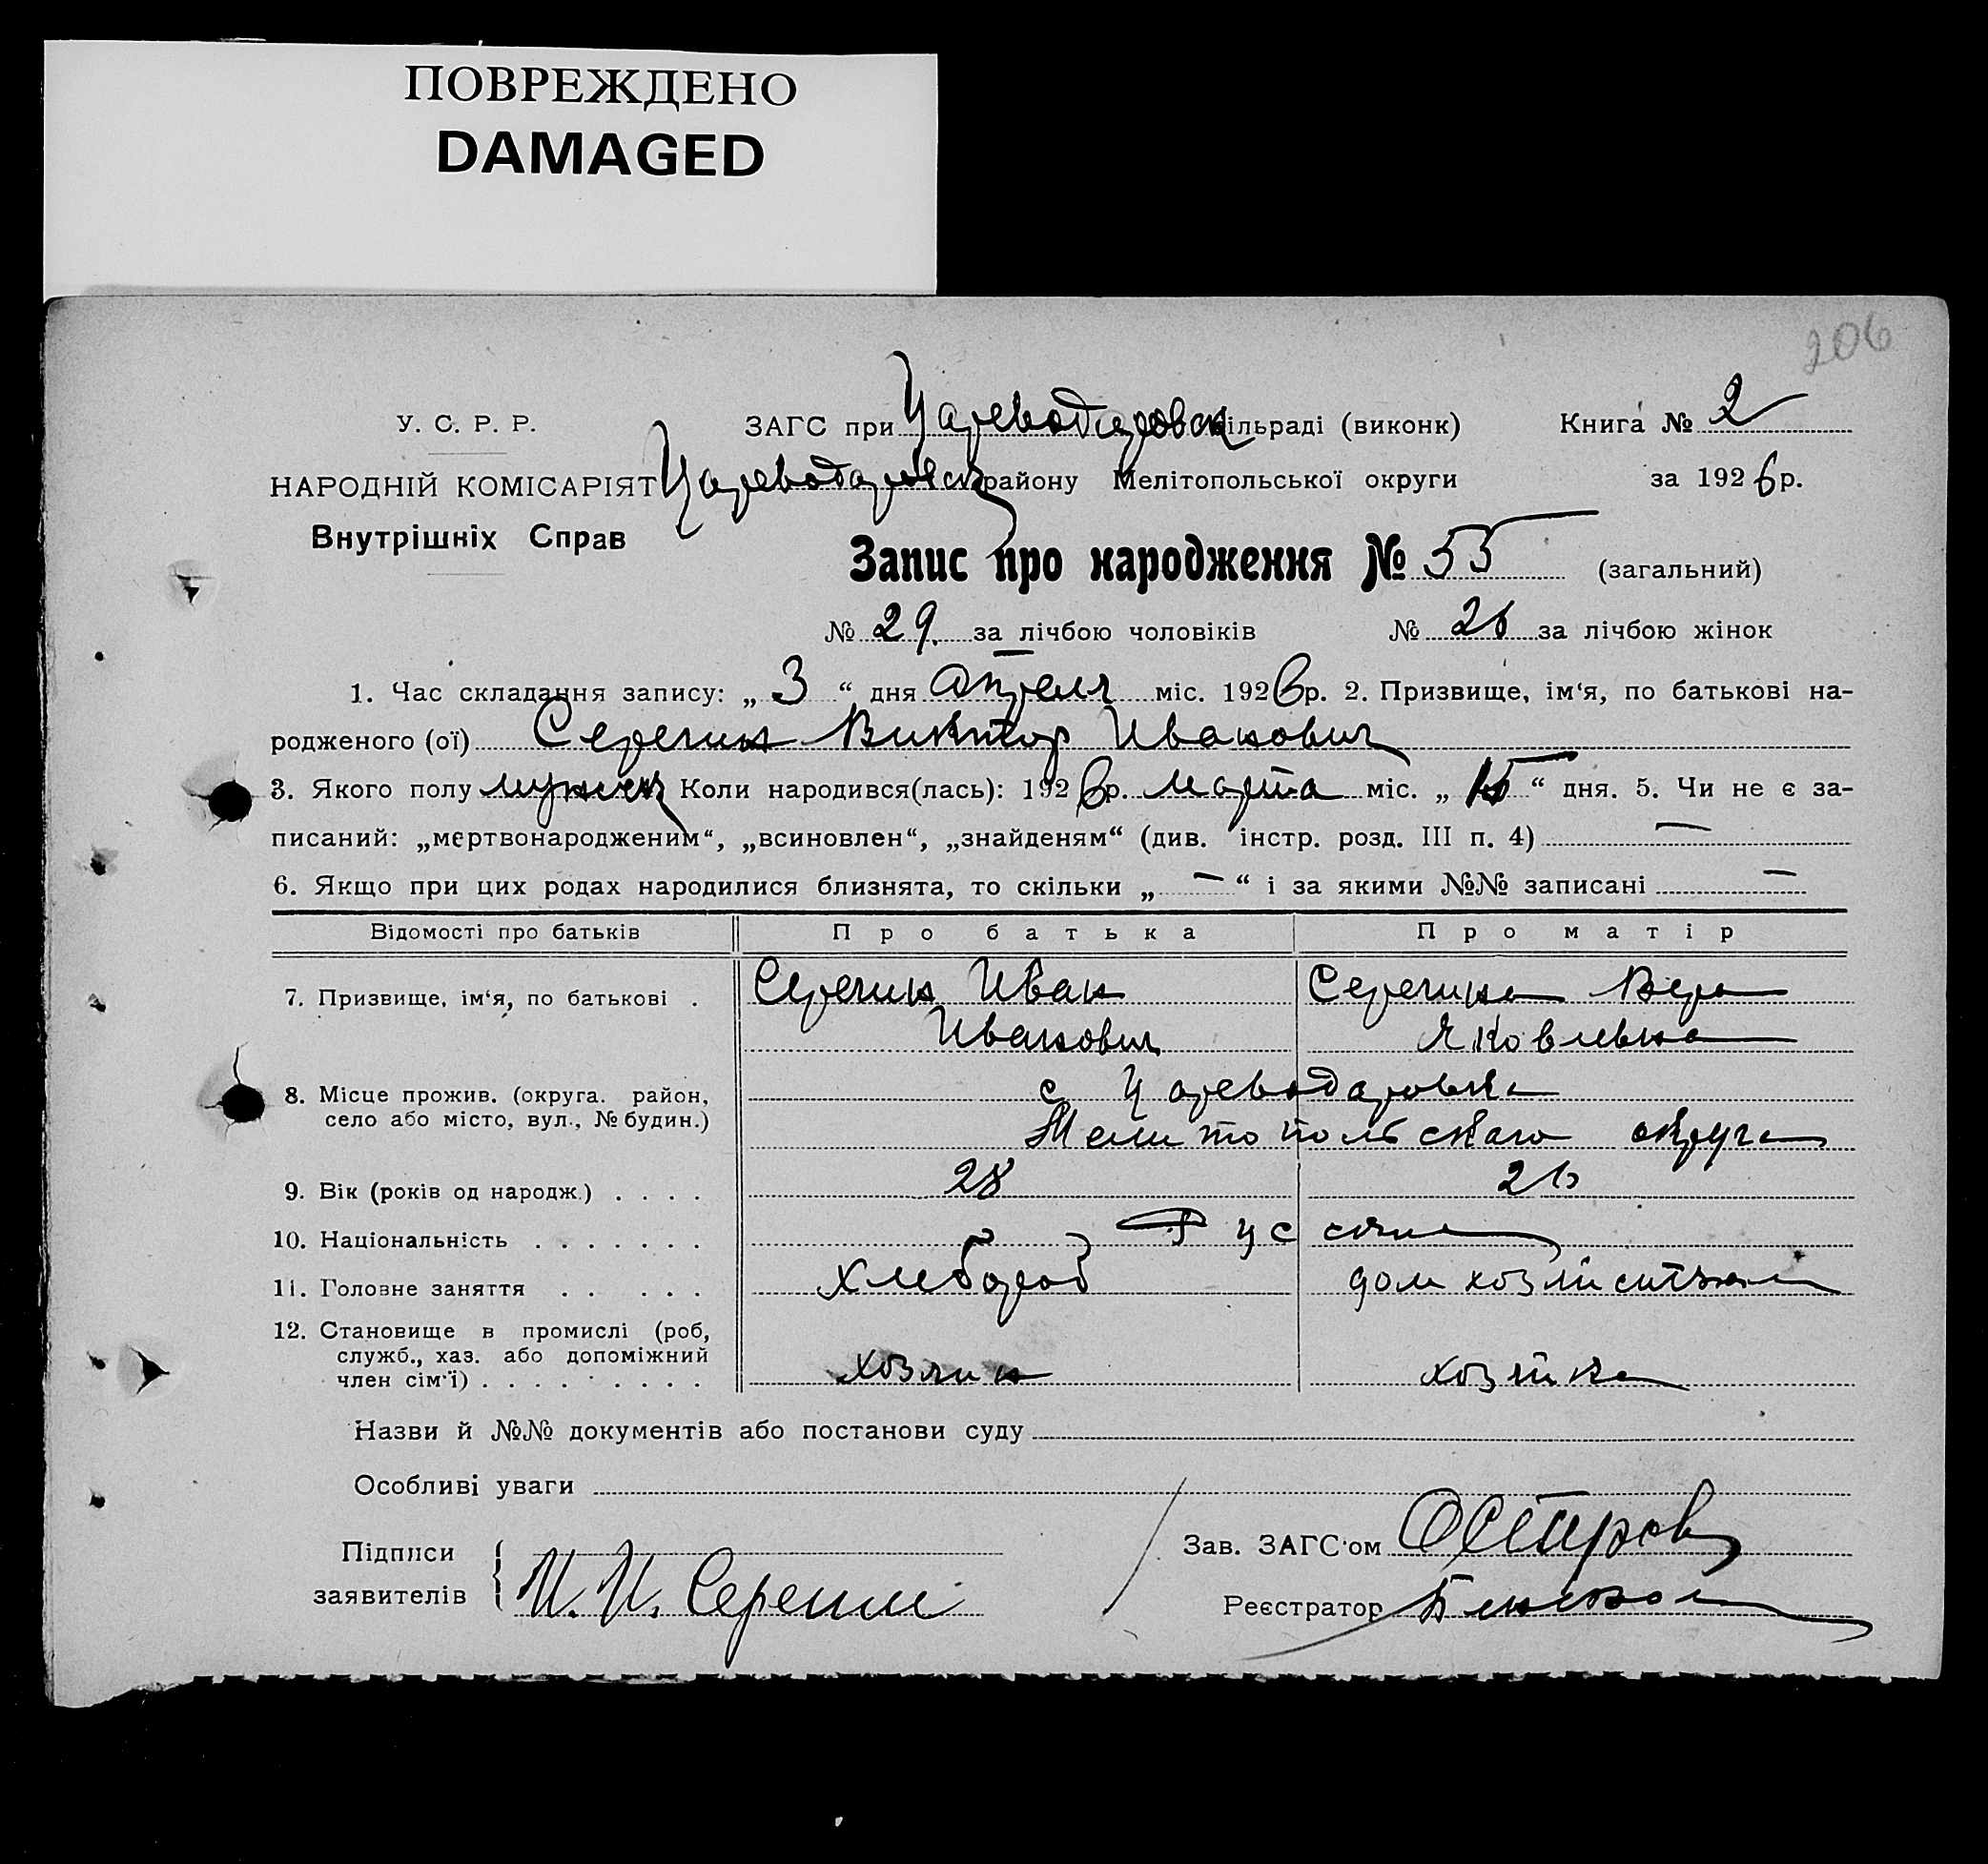 ПОВРЕЖДЕНО
DAMAGED
206
У. С. Р. Р. ЗАГС при Цареводаровск сільраді (виконк) Книга № 2
НАРОДНІЙ КОМІСАРІЯТ Цареводаровск району Мелітопольської округи за 1926 р.
Внутрішніх Справ
Запис про народження № 55 (загальний)
№ 29. за лічбою чоловіків № 26 за лічбою жінок
1. Час складання запису: „ 3 “ дня апреля міс. 1926 р. 2. Призвище, ім‘я, по батькові на-
родженого (ої) Серегин Виктор Иванович
3. Якого полу мужск Коли народився(лась): 1926 р. марта міс. „ 15 “ дня. 5. Чи не є за-
писаний: „мертвонародженим“, „всиновлен“, „знайденям“ (див. інстр. розд. III п. 4) —
6. Якщо при цих родах народилися близнята, то скільки „ — “ і за якими №№ записані —
Відомості про батьків Про батька Про матір
7. Призвище, ім‘я, по батькові . Серегин Иван Серегина Вера
Иванович Яковлевна
8. Місце прожив. (округа. район, с Цареводаровка
село або місто, вул., № будин.) Мелитопольскаго округа
9. Вік (років од народж.) . . . . 28 26
10. Національність . . . . . . . Русские
11. Головне заняття . . . . . Хлебороб дом хозяйство
12. Становище в промислі (роб,
служб., хаз. або допоміжний
член сім‘ї) . . . . . . . . . хозяин хозяйка
Назви й №№ документів або постанови суду
Особливі уваги
Підписи Зав. ЗАГС‘ом
заявителів И. И. Серегин Реєстратор